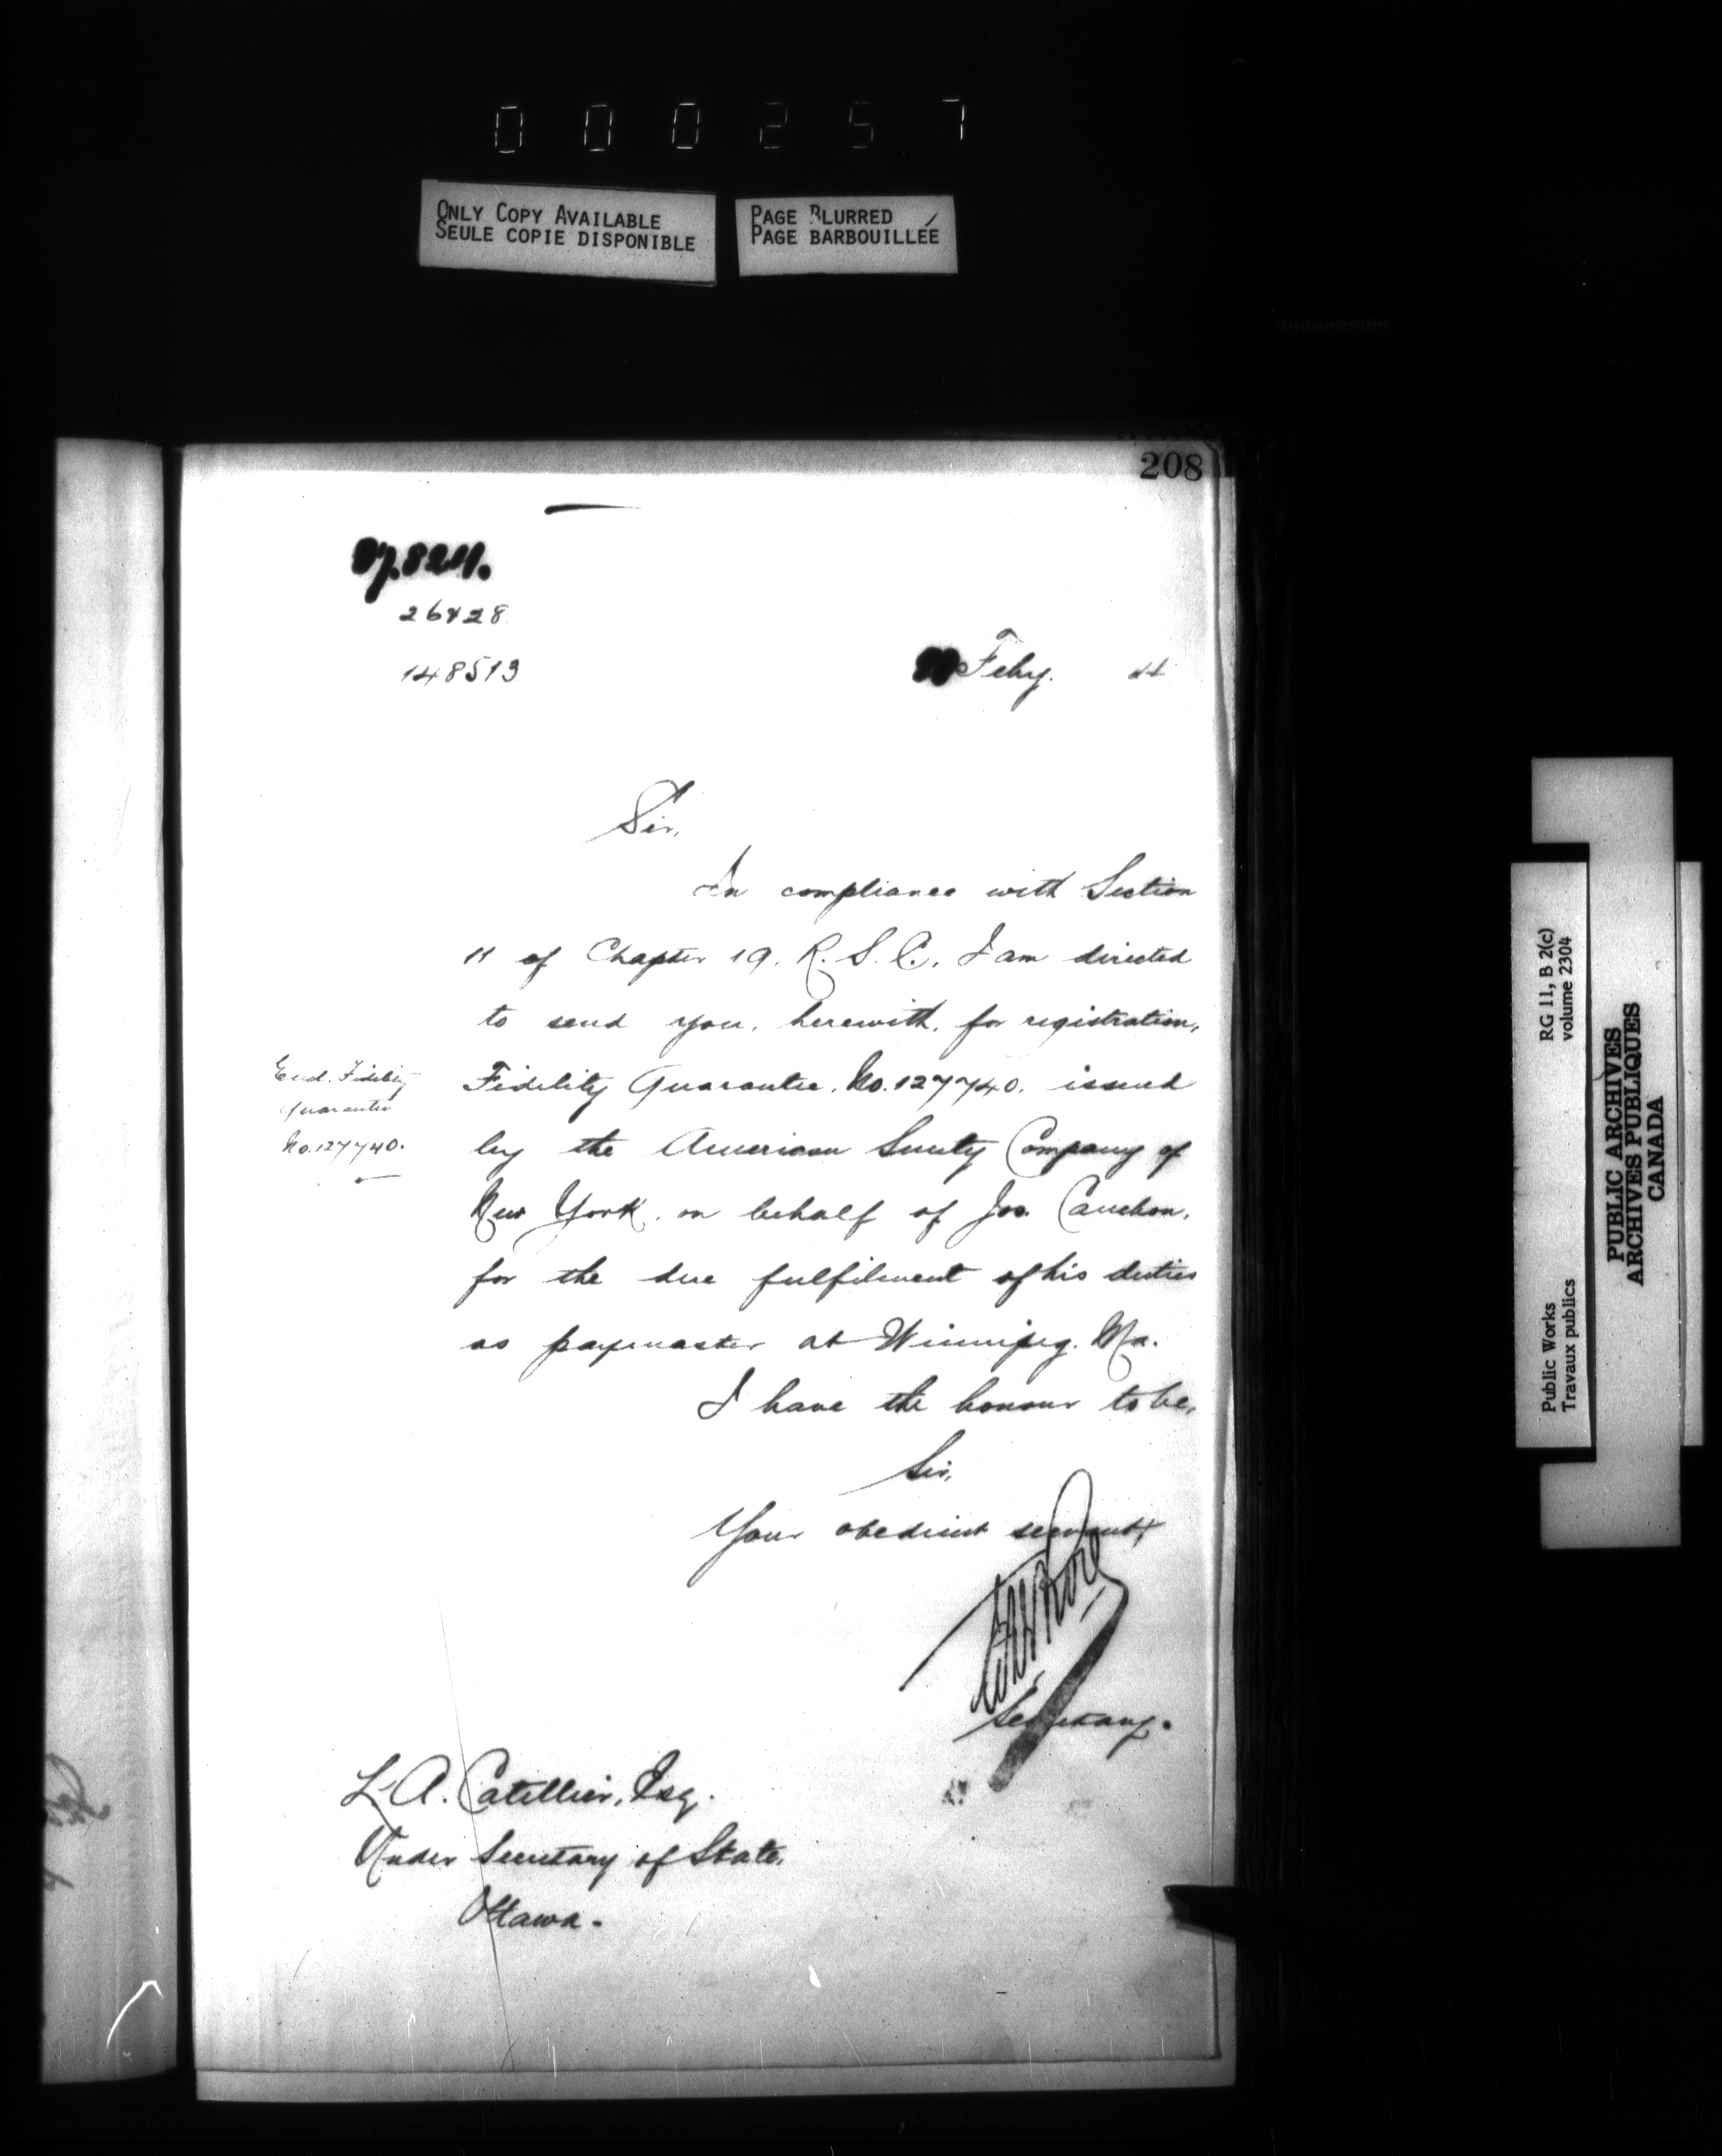 000257
ONLY COPY AVAILABLE
SEULE COPIE DISPONIBLE
PAGE BLURRED
PAGE BARBOUILLÉE
208
26428
148513
Feby.
Sir,
In compliance with Section
11 of Chapter 19. R. S. C. I am directed
to send you, herewith, for registration,
Fidelity Guarantee, No. 127740, issued
by the American Surety Company of
New York, on behalf of Jos. Cauchon,
for the due fulfilment of his duties
as paymaster at Winnipeg, Ma.
Encl. Fidelity
Guarantee
No. 127740.
I have the honour to be,
Sir,
Your obedient servant,
Secretary.
L. A. Catellier, Esq.
Under Secretary of State,
Ottawa.
RG 11, B 2(c)
volume 2304
Public Works
Travaux publics
PUBLIC ARCHIVES
ARCHIVES PUBLIQUES
CANADA